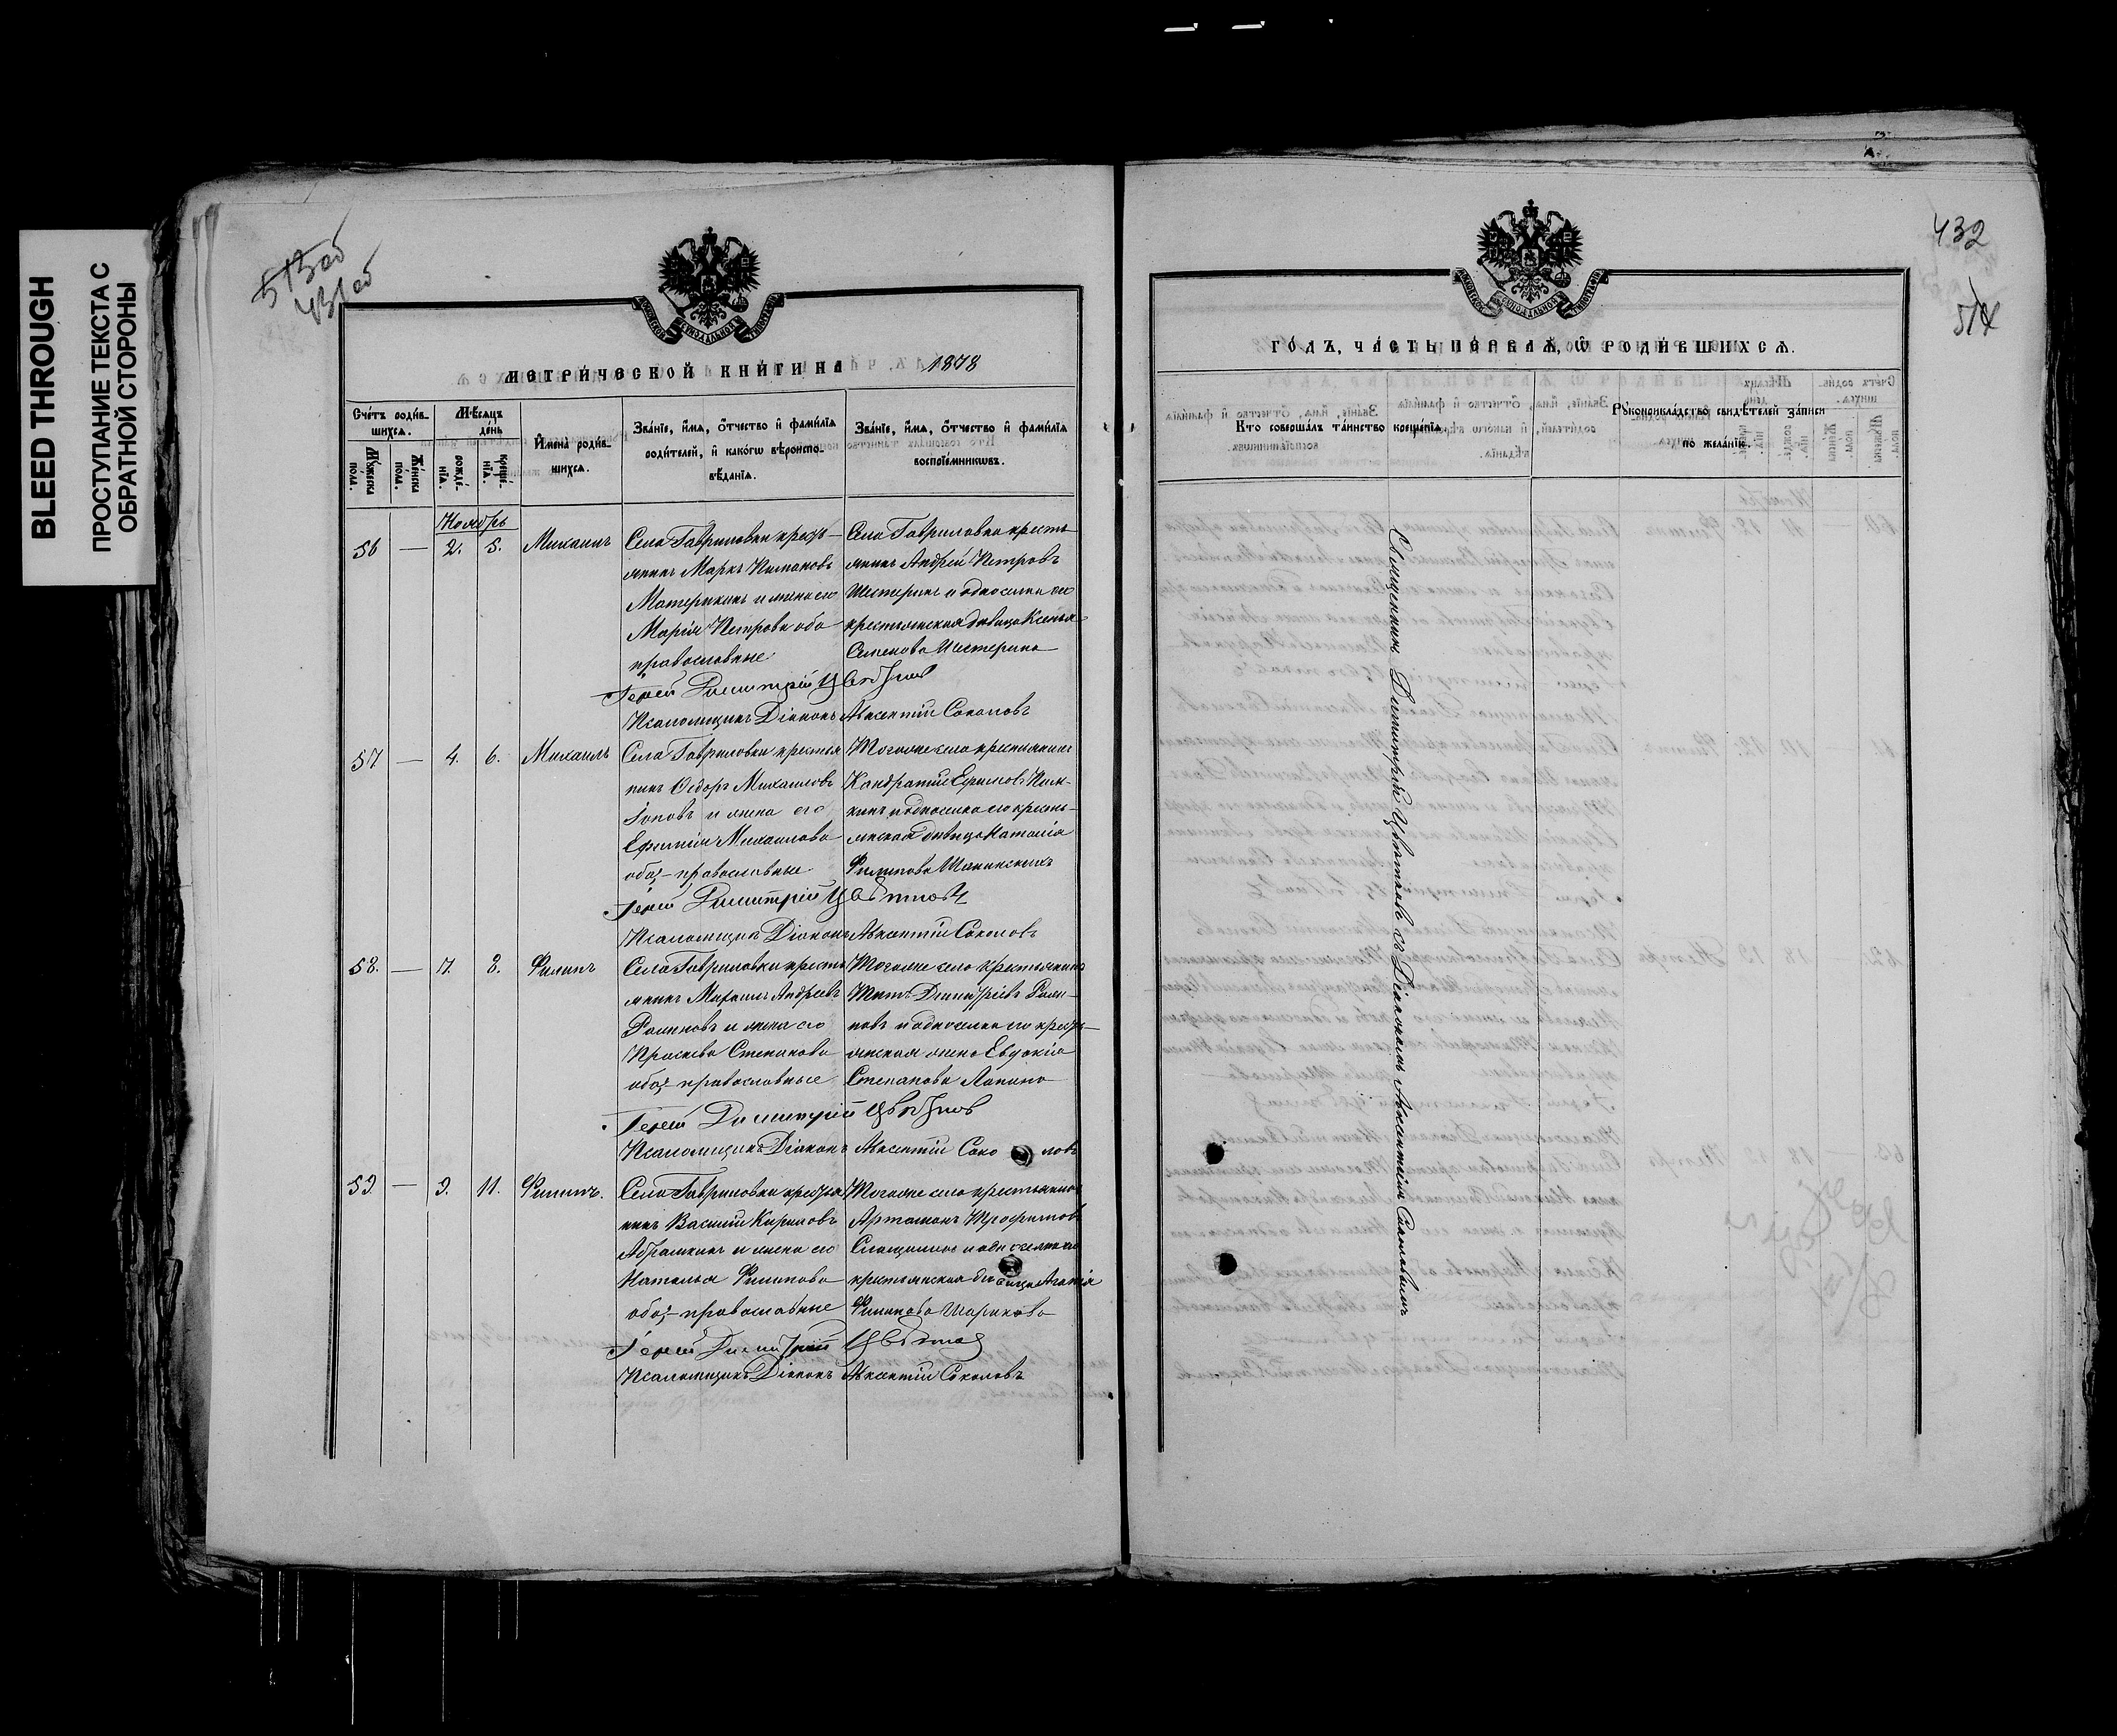 BLEED THROUGH
ПРОСТУПАНИЕ ТЕКСТА С
ОБРАТНОЙ СТОРОНЫ
513об
431об
МЕТРИ́ЧЕСКОЙ КНИ́ГИ НА 1878
Сче́тъ роди́в-
шихсѧ.
Мѣ́сѧцъ
де́нь
И҆мена̀ роди́в-
шихсѧ.
Зва́нїе, и҆́мѧ, ѻ҆́тчество и҆ фами́лїѧ
роди́телей, и҆ како́гѡ вѣроиспо-
вѣ́данїѧ.
Зва́нїе, и҆́мѧ, ѻ҆́тчество и҆ фами́лїѧ
воспрїе́мникѡвъ.
Мꙋ́жеска
по́ла.
Же́нска
по́ла.
рожде́-
нїѧ.
креще́-
нїѧ.
Ноябрь
56 — 2. 5. Михаилъ
Села Гавриловки кресть-
янинъ Маркъ
и жена его
Марія Петрова оба
православные
Села Гавриловки кресть
янинъ Андрей Петровъ
Шестеринъ и односелка его
крестьянская дѣвица Ксенья
Семенова Шестерина
Іерей Димитрій Цвѣтков
Псаломщикъ Діаконъ Авксентій Соколовъ
57 — 4. 6. Михаилъ
Села Гавриловки крестья
нинъ Ѳедоръ Михаиловъ
и жена его
Ефимія Михаилова
оба – православные
Тогоже села крестьянинъ
Кондратій Ефимовъ
и односелка его кресть-
янская дѣвица Наталія
Филипова
Іерей Димитрій Цвѣтковъ
Псаломщикъ Діаконъ Авксентій Соколовъ
58. — 7. 8. Филипъ
Села Гавриловки кресть
янинъ Михаилъ Андреевъ
и жена его
Прасковья Степанова
оба – православные
Тогоже села крестьянинъ
Титъ Димитріевъ
и односелка его кресть-
янская жена Евдокія
Степанова Лапина
Іерей Димитрій Цвѣтков
Псаломщикъ Діаконъ Авксентій Соколовъ
59. — 9. 11. Филипъ.
Села Гавриловки крестья
нинъ Василій Кириловъ
Абрамкинъ и жена его
Наталья Филипова
оба – православные
Тогоже села крестьянинъ
Артамонъ Трофимовъ
и односелка его
крестьянская дѣвица Агапія
Филипова Шарикова
Іерей Димитрій Цвѣтков
Псаломщикъ Діаконъ Авксентій Соколовъ
432
514
ГО́ДЪ, ЧА́СТЬ ПЕ́РВАѦ, Ѽ РОДИ́ВШИХСѦ.
Кто̀ соверша́лъ та́инство креще́нїѧ.
Рꙋкоприкла́дство свидѣ́телей за́писи
по жела́нїю.
Священникъ Димитрій Цвѣтковъ съ Діакономъ Авксентіемъ Соколовымъ